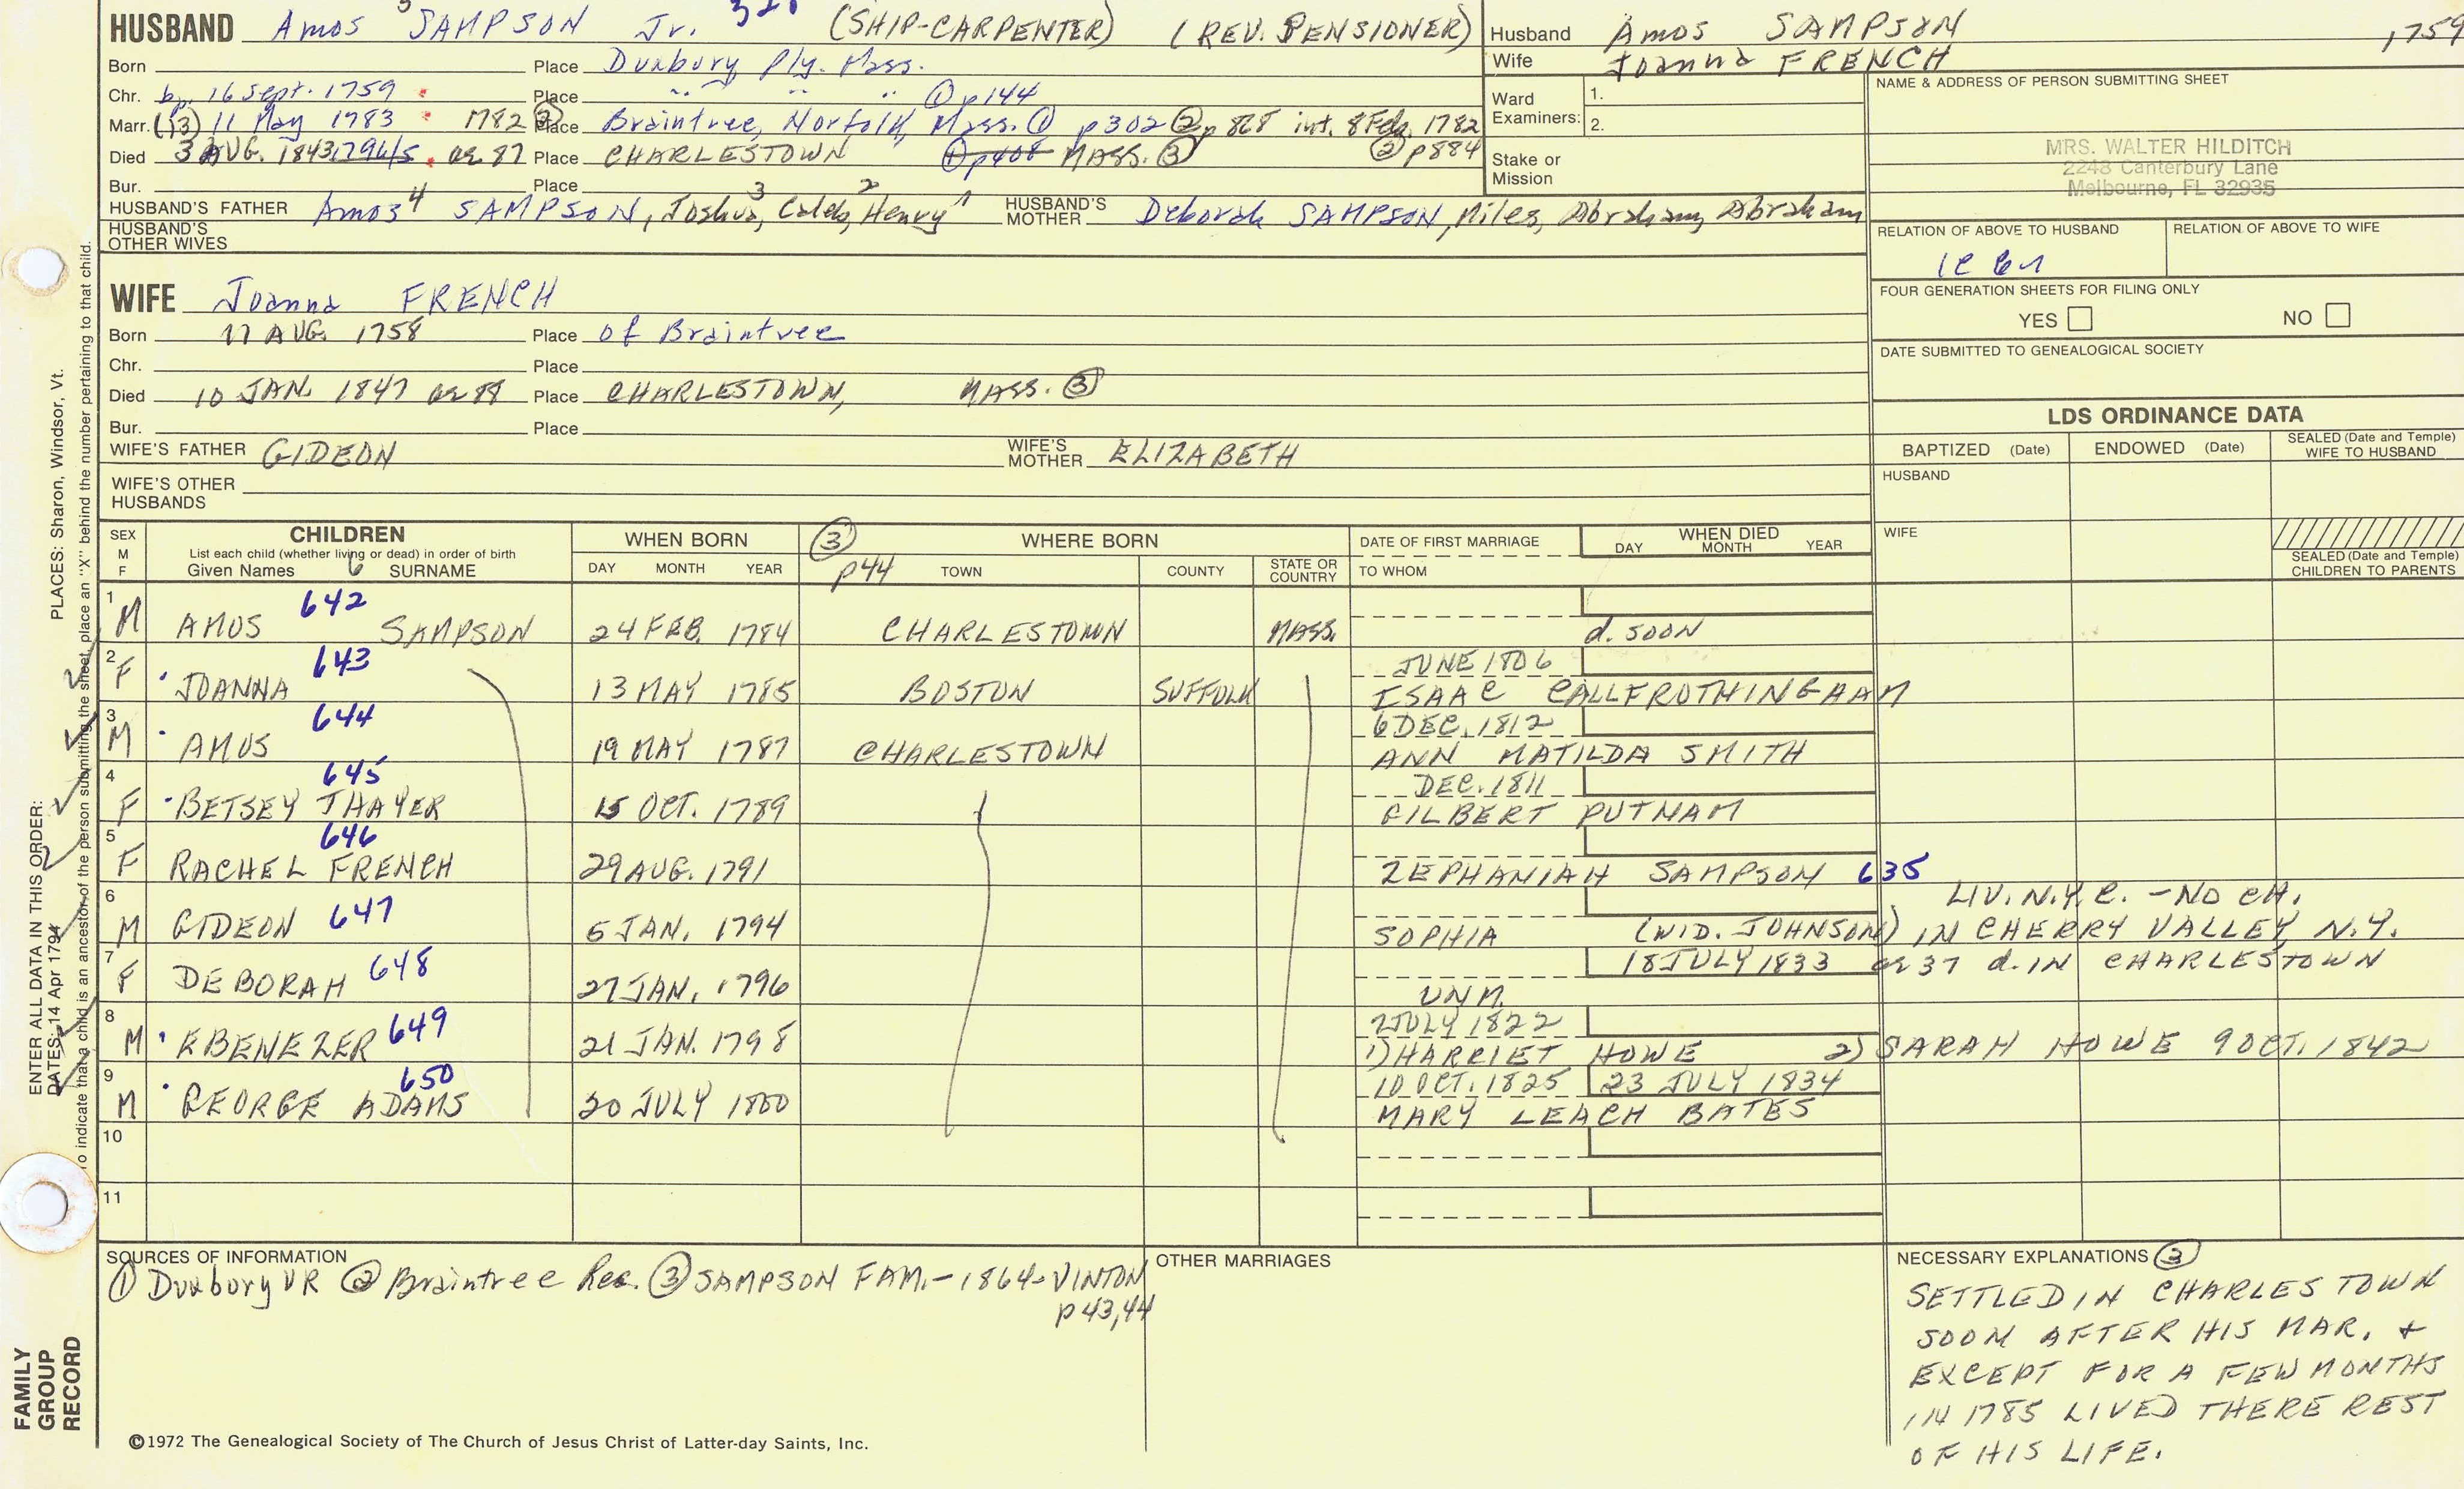 HUSBAND Amos 5 SAMPSON Jr. (SHIP-CARPENTER) (REV. PENSIONER)
Husband Amos SAMPSON 1759
Wife Joanna FRENCH
Born Place Duxbury Ply. Mass.
Chr. bp. 16 Sept. 1759 Place " " " ① p144
Marr. (13) 11 May 1783 1782 ② Place Braintree, Norfolk, Mass. ① p302 ② p 828 int. 8 Feb. 1782
Died 3 AUG. 1843, 1794/5 ae 87 Place CHARLESTOWN ① p408 MASS. ③ ② p884
Bur. Place
Ward Examiners: 1.
2.
Stake or Mission
HUSBAND'S FATHER Amos 4 SAMPSON, Joshua 3, Caleb 2, Henry 1 HUSBAND'S MOTHER Deborah SAMPSON, Miles, Abraham, Abraham
HUSBAND'S OTHER WIVES
NAME & ADDRESS OF PERSON SUBMITTING SHEET
MRS. WALTER HILDITCH
2248 Canterbury Lane
Melbourne, FL 32935
RELATION OF ABOVE TO HUSBAND RELATION OF ABOVE TO WIFE
FOUR GENERATION SHEETS FOR FILING ONLY
YES NO
DATE SUBMITTED TO GENEALOGICAL SOCIETY
WIFE Joanna FRENCH
Born 17 AUG. 1758 Place of Braintree
Chr. Place
Died 10 JAN. 1847 ae 88 Place CHARLESTOWN, MASS. ③
Bur. Place
WIFE'S FATHER GIDEON WIFE'S MOTHER ELIZABETH
WIFE'S OTHER HUSBANDS
LDS ORDINANCE DATA
BAPTIZED (Date) ENDOWED (Date) SEALED (Date and Temple) WIFE TO HUSBAND
HUSBAND
WIFE
SEALED (Date and Temple) CHILDREN TO PARENTS
SEX M F CHILDREN WHEN BORN ③ WHERE BORN DATE OF FIRST MARRIAGE WHEN DIED
List each child (whether living or dead) in order of birth
Given Names 6 SURNAME DAY MONTH YEAR p44 TOWN COUNTY STATE OR COUNTRY TO WHOM DAY MONTH YEAR
1 M AMOS 642 SAMPSON 24 FEB. 1784 CHARLESTOWN MASS. d. SOON
2 F JOANNA 643 13 MAY 1785 BOSTON SUFFOLK JUNE 1806
ISAAC CALLFROTHINGHAM
3 M AMOS 644 19 MAY 1787 CHARLESTOWN 6 DEC. 1812
ANN MATILDA SMITH
4 F BETSEY THAYER 645 15 OCT. 1789 DEC. 1811
GILBERT PUTNAM
5 F RACHEL FRENCH 646 29 AUG. 1791 ZEPHANIAH SAMPSON 635
LIV. N.Y.C. - NO CH.
6 M GIDEON 647 5 JAN. 1794 SOPHIA (WID. JOHNSON) IN CHERRY VALLEY, N.Y.
7 F DEBORAH 648 27 JAN. 1796 18 JULY 1833 ae 37 d. IN CHARLESTOWN
UNM.
8 M EBENEZER 649 21 JAN. 1798 2 JULY 1822
1) HARRIET HOWE 2) SARAH HOWE 9 OCT. 1842
9 M GEORGE ADAMS 650 20 JULY 1800 10 OCT. 1825 23 JULY 1834
MARY LEACH BATES
10
11
SOURCES OF INFORMATION
① Duxbury VR ② Braintree Rec. ③ SAMPSON FAM. - 1864 - VINTON
p 43, 44
OTHER MARRIAGES
NECESSARY EXPLANATIONS ③
SETTLED IN CHARLESTOWN
SOON AFTER HIS MAR. +
EXCEPT FOR A FEW MONTHS
IN 1785 LIVED THERE REST
OF HIS LIFE.
©1972 The Genealogical Society of The Church of Jesus Christ of Latter-day Saints, Inc.
FAMILY GROUP RECORD
ENTER ALL DATA IN THIS ORDER:
DATES: 14 Apr 1794 PLACES: Sharon, Windsor, Vt.
To indicate that a child is an ancestor of the person submitting the sheet, place an "X" behind the number pertaining to that child.